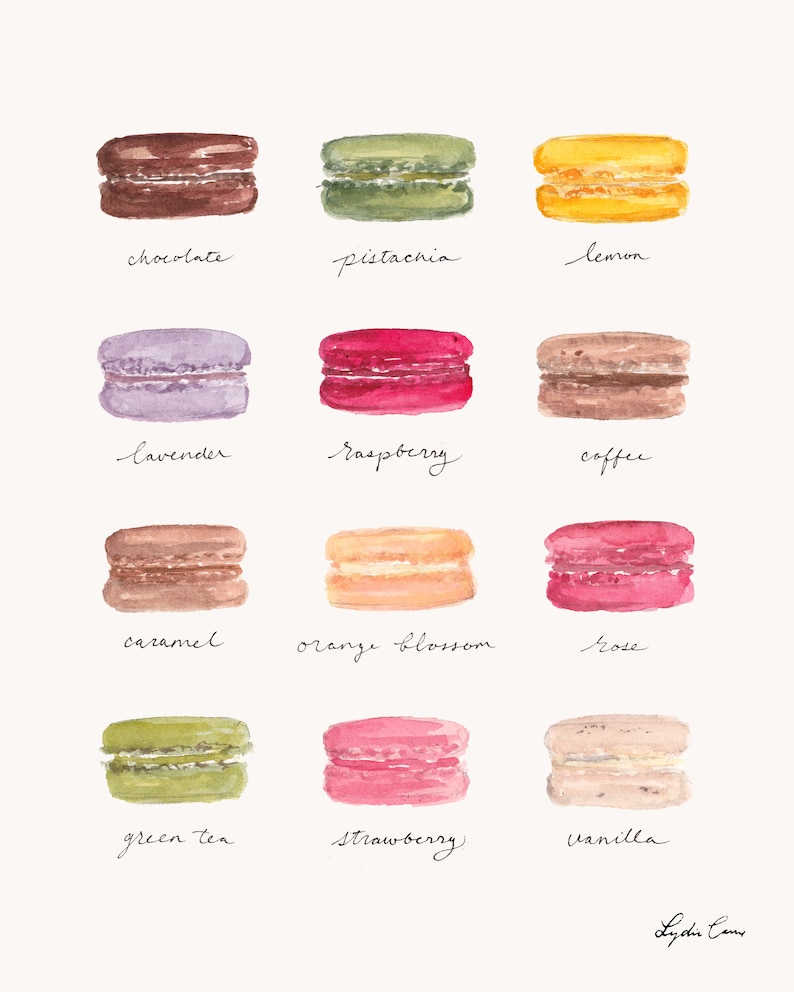 chocolate
pistachia
lemon
lavender
raspberry
coffee
caramel
orange blossom
rose
green tea
strawberry
vanilla